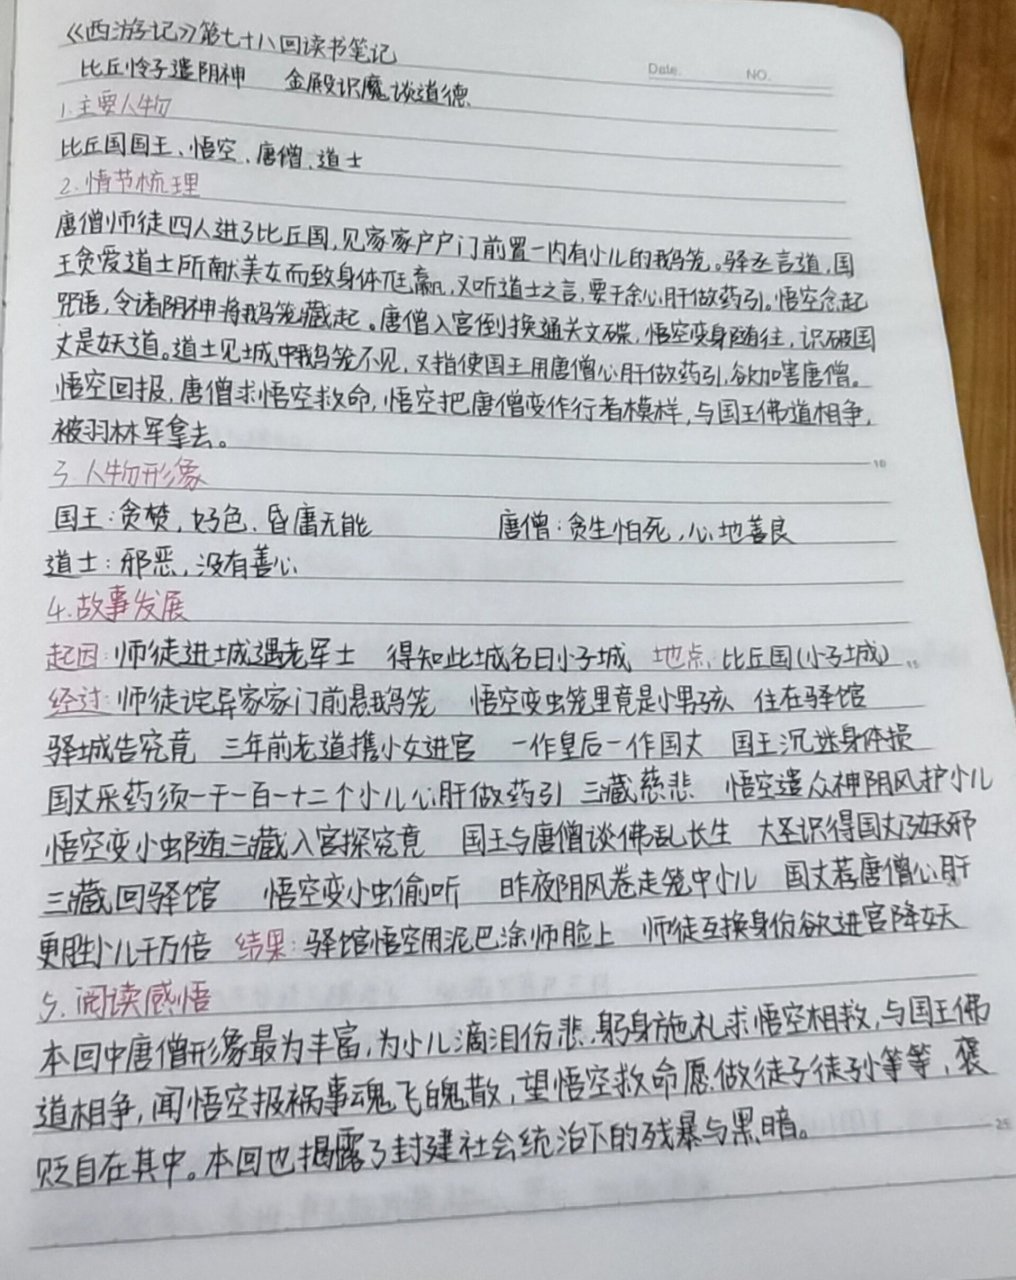 《西游记》第七十八回读书笔记
Date. NO.
比丘怜子遣阴神 金殿识魔谈道德
1.主要人物
比丘国国王、悟空、唐僧、道士
2.情节梳理
唐僧师徒四人进了比丘国,见家家户户门前置一内有小儿的鹅笼。驿丞言道,国
王贪爱道士所献美女而致身体尫羸,又听道士之言,要千余心肝做药引。悟空念起
咒语,令诸阴神将鹅笼藏起。唐僧入宫倒换通关文碟,悟空变身随往,识破国
丈是妖道。道士见城中鹅笼不见,又指使国王用唐僧心肝做药引,欲加害唐僧。
悟空回报,唐僧求悟空救命,悟空把唐僧变作行者模样,与国王佛道相争,
被羽林军拿去。
10
3.人物形象
国王:贪婪,好色、昏庸无能 唐僧:贪生怕死,心地善良
道士:邪恶,没有善心
4.故事发展
起因:师徒进城遇老军士 得知此城名曰小子城 地点:比丘国(小子城)
15
经过:师徒诧异家家门前悬鹅笼 悟空变虫笼里竟是小男孩 住在驿馆
驿城告究竟 三年前老道携小女进宫 一作皇后一作国丈 国王沉迷身体损
国丈采药须一千一百一十二个小儿心肝做药引 三藏慈悲 悟空遣众神阴风护小儿
悟空变小虫随三藏入宫探究竟 国王与唐僧谈佛乱长生 大圣识得国丈乃妖邪
三藏回驿馆 悟空变小虫偷听 昨夜阴风卷走笼中小儿 国丈荐唐僧心肝
更胜小儿千万倍 结果:驿馆悟空用泥巴涂师脸上 师徒互换身份欲进宫降妖
5.阅读感悟
本回中唐僧形象最为丰富,为小儿滴泪伤悲,躬身施礼求悟空相救,与国王佛
道相争,闻悟空报祸事魂飞魄散,望悟空救命愿做徒子徒孙等等,褒
贬自在其中。本回也揭露了封建社会统治下的残暴与黑暗。
25